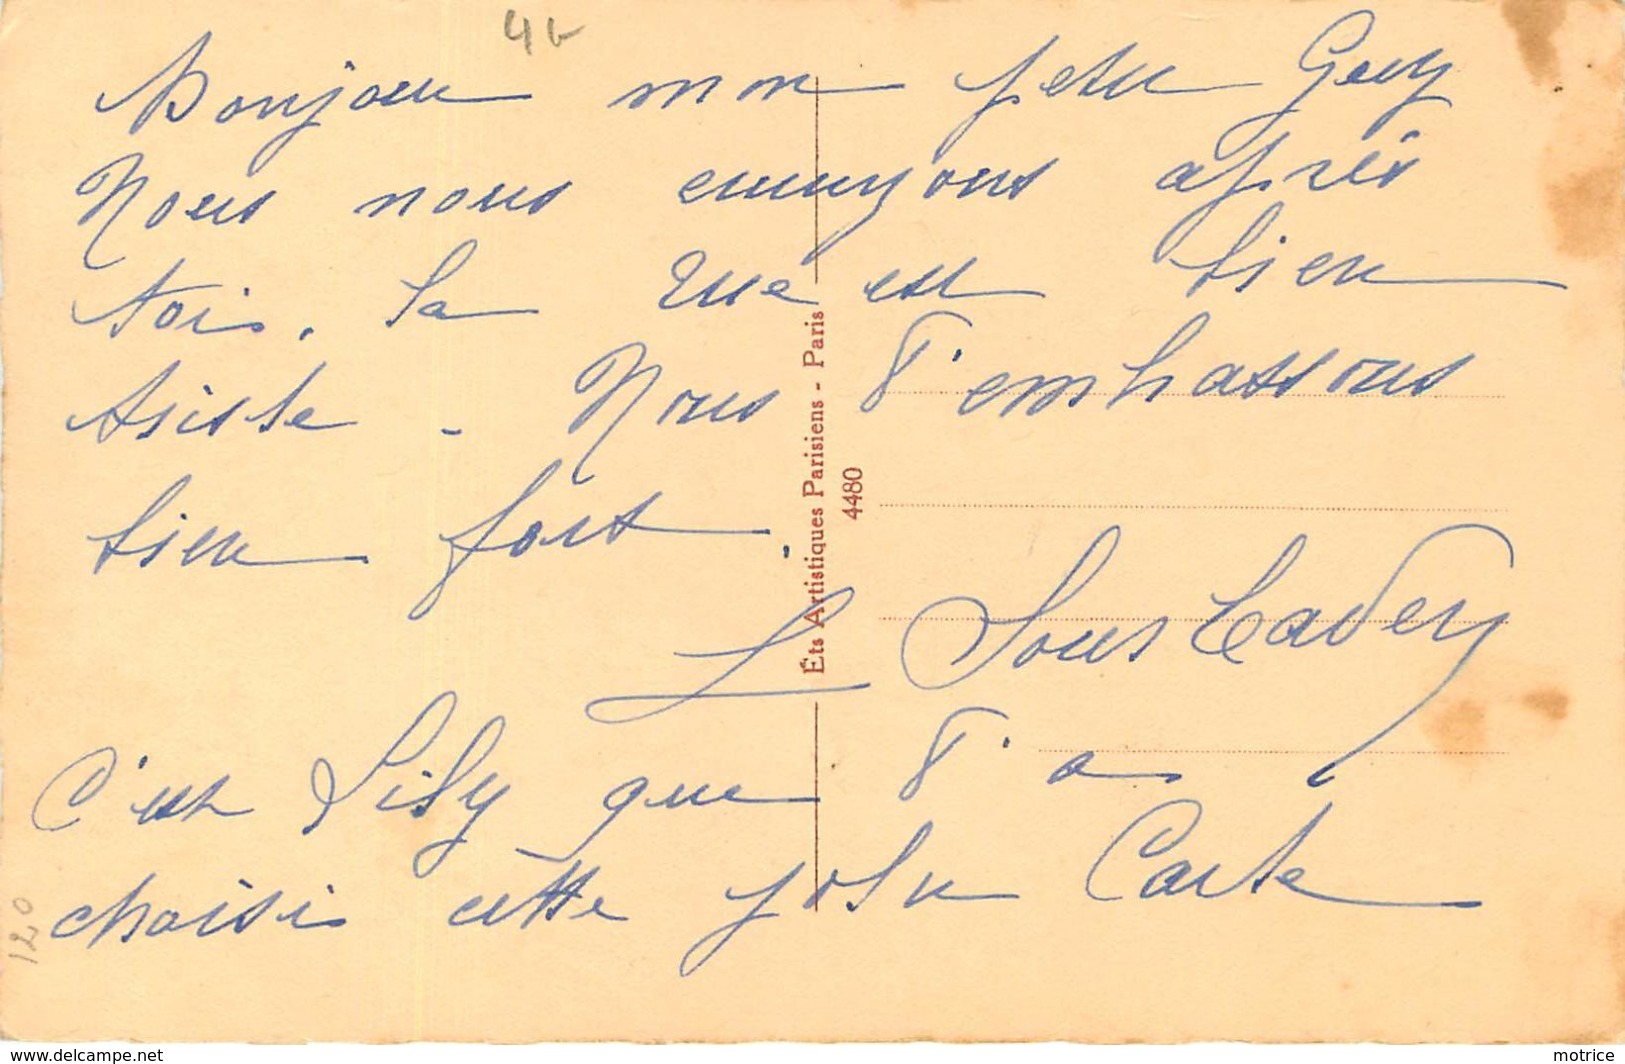 4
Bonjour mon petit Guy
Nous nous ennuyons après
toi. la rue est bien
triste - Nous T'embrassons
bien fort.
C'est Lily que T'a
choisi cette jolie Carte
120
Éts Artistiques Parisiens - Paris
4480
www.delcampe.net
motrice